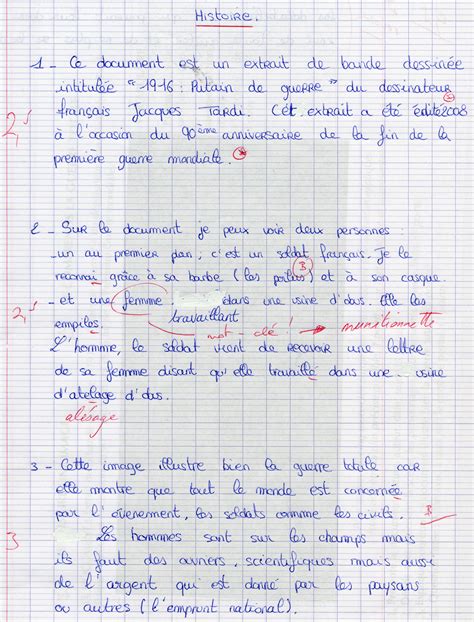 Histoire.
1 - Ce document est un extrait de bande dessinée
intitulée "19-16 : Putain de guerre" du dessinateur
français Jacques Tardi. Cet extrait a été édité 2008
à l'occasion du 90ème anniversaire de la fin de la
première guerre mondiale.
2,5
2 - Sur le document je peux voir deux personnes :
- un au premier plan ; c'est un soldat français. Je le
reconnai grâce à sa barbe (les poilus) et à son casque.
B
- et une femme dans une usine d'obus. Elle les
travaillant
empiles.
mot-clé ! → munitionnette
2,5
L'homme, le soldat vient de recevoir une lettre
de sa femme disant qu'elle travaillé dans une usine
d'abelage d'obus.
alésage
3 - Cette image illustre bien la guerre totale car
elle montre que tout le monde est concernée
par l'évenement, les soldats comme les civils.
B
Les hommes sont sur les champs mais
3
ils faut des ouvriers, scientifiques mais aussi
de l'argent qui est donné par les paysans
ou autres (l'emprunt national).